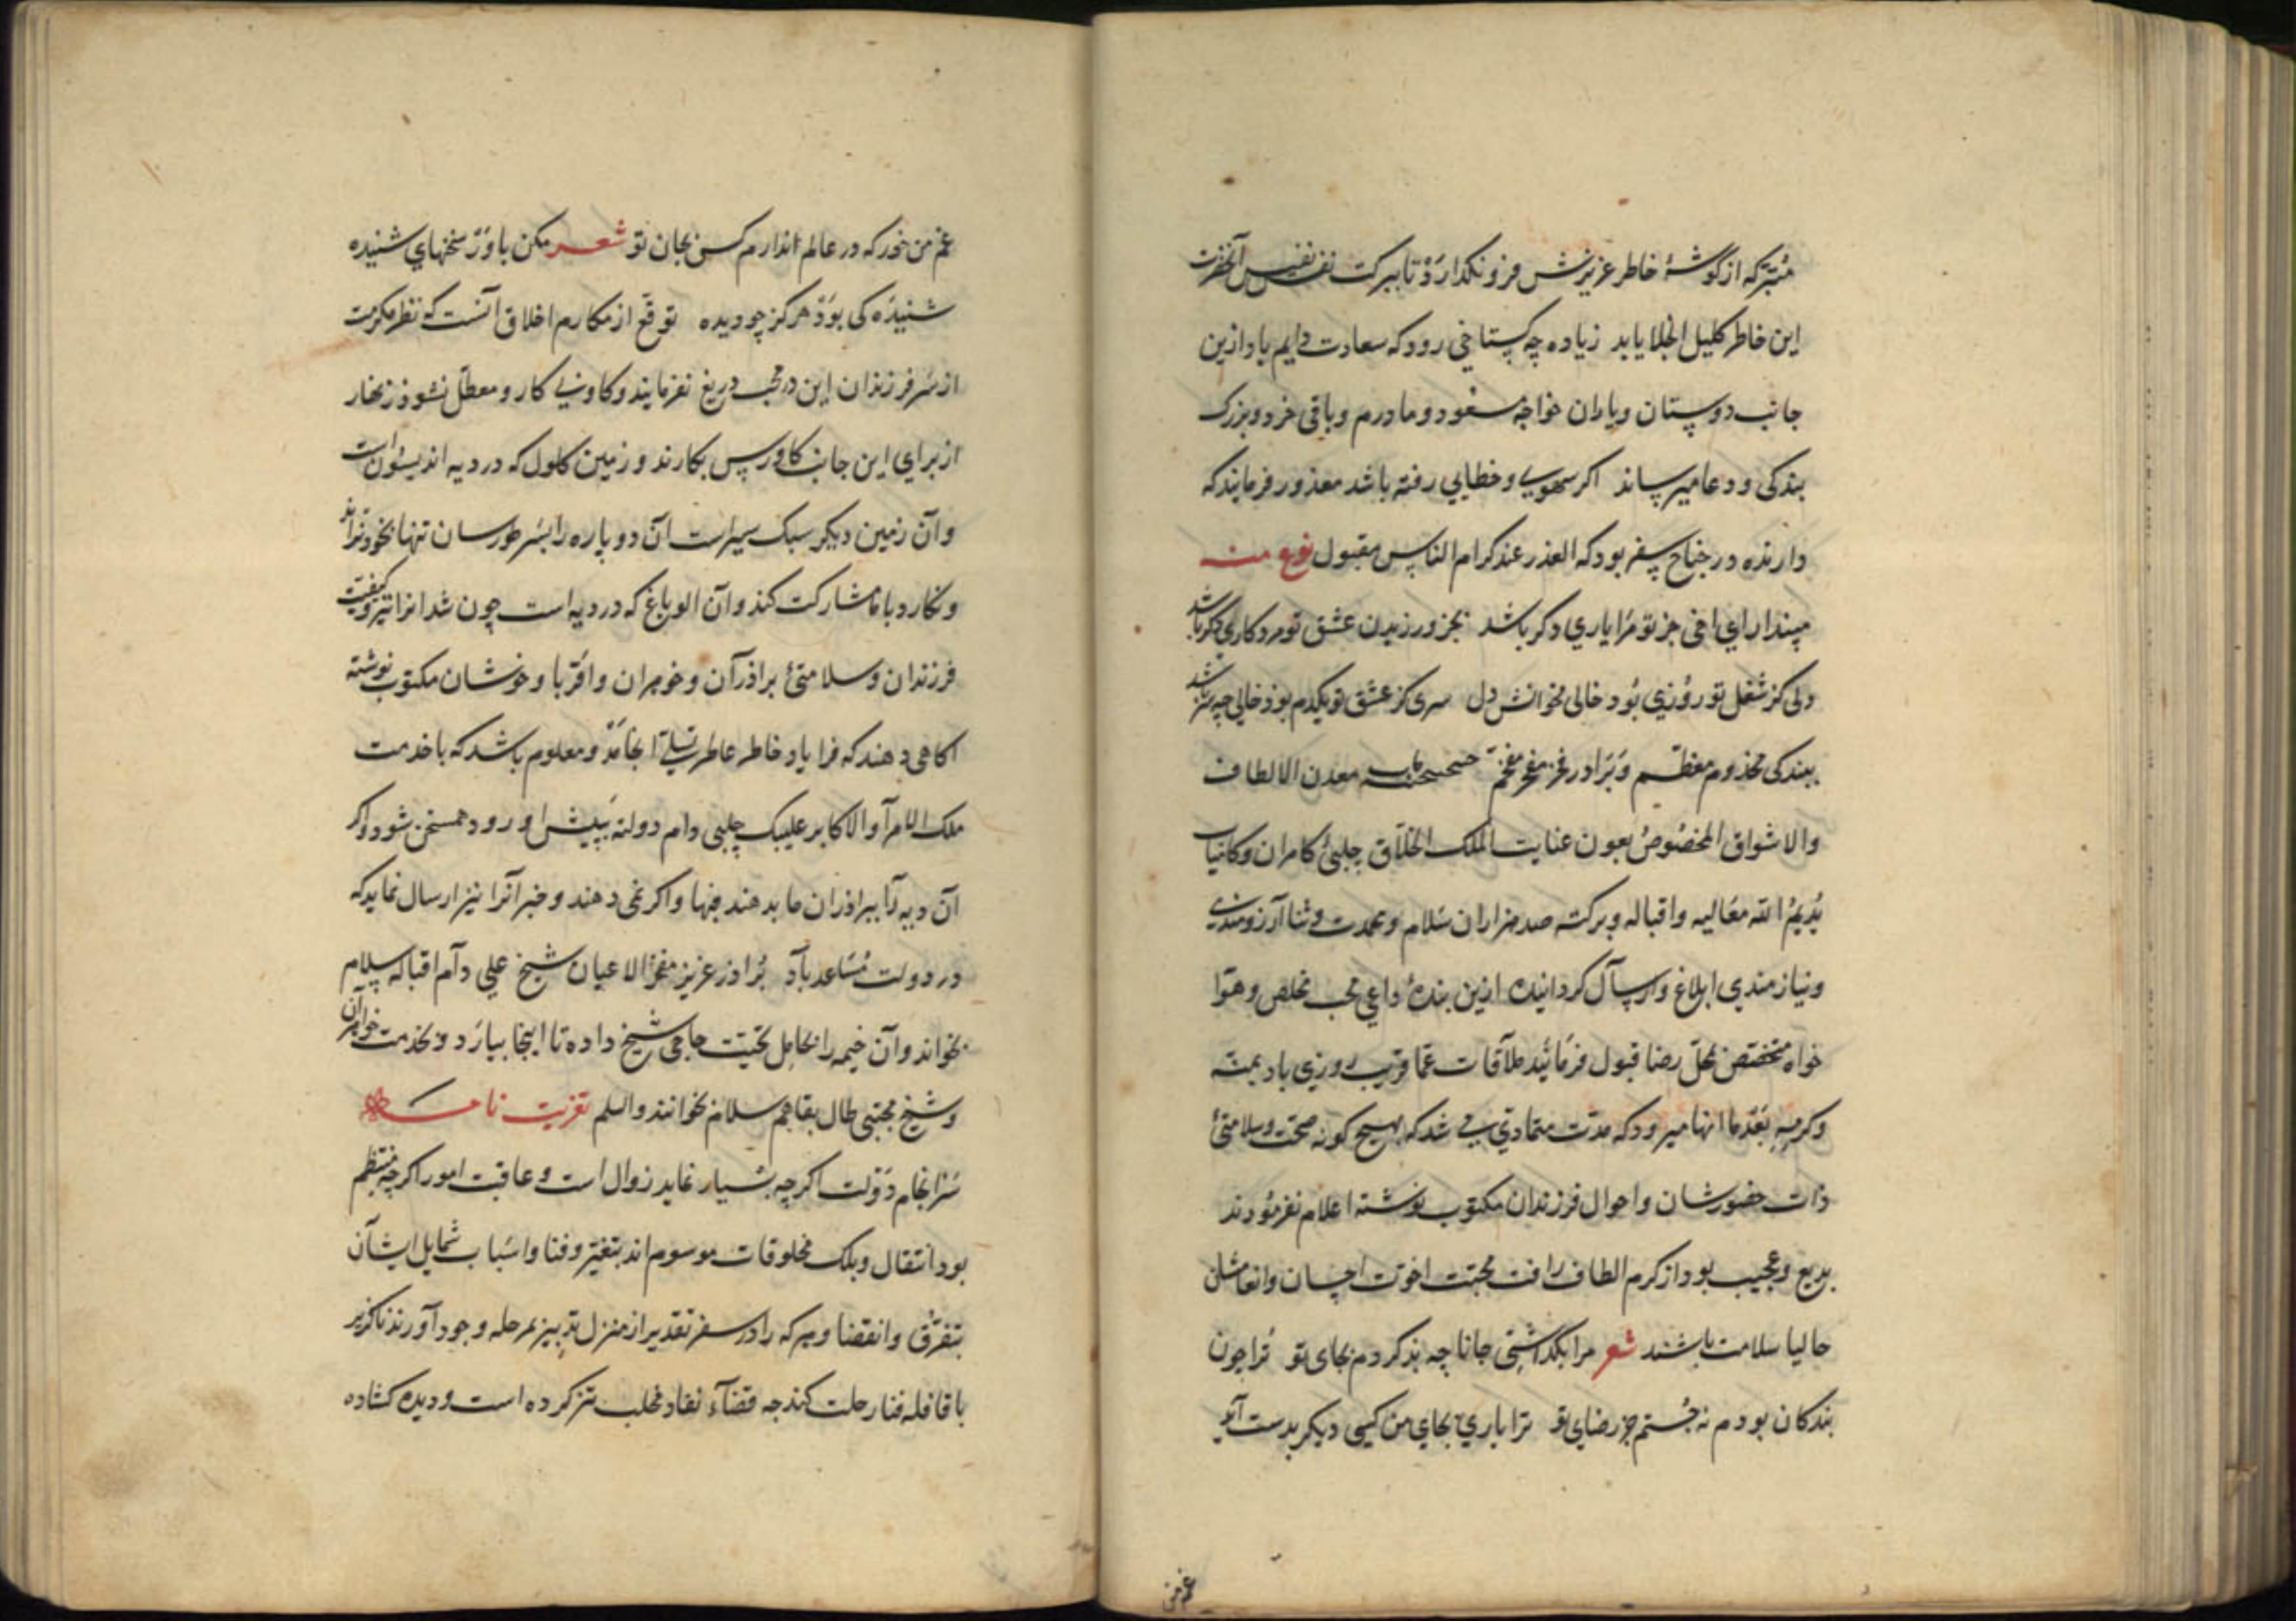 متبرکه از گوشهٔ خاطر عزیزش فرو نگذارد تا ببرکت نفس نفیس آنحضرت
این خاطر کلیل انجلا یابد زیاده چه کستاخی رود که سعادت دایم باد ازین
جانب دوستان و یاران خواجه مسعود و مادرم و باقی خرد و بزرک
بندکی و دعا میرساند اکر سهوی و خطایی رفته باشد معذور فرمایند که
دارنده در جناح سفر بود که العذر عند کرام الناس مقبول نوع منه
مپندار ای اخی جز تو مرا یاری دکر باشد بجز ورزیدن عشق تو مرد کاری دکر باشد
دلی کز شغل تو روزی بود خالی مخوانش دل سری کز عشق تو یکدم بود خالی چه سر باشد
ببندکی مخذوم معظم و برادر مفخم معدن الالطاف
والاشواق المخصوص بعون عنایت الملک الخلاق چلبیٔ کامران و کامیاب
یدیم الله معالیه و اقباله و برکته صد هزاران سلام و محمدت و ثنا آرزومندی
و نیازمندی ابلاغ و ارسال کردانیده ازین بندهٔ داعی محب مخلص و هوا
خواه متخصص بمحل رضا قبول فرمائید ملاقات عما قریب روزی باد بمنه
و کرمه بعدما انها میرود که مدت متمادی شد که بهیچ کونه صحت و سلامتیٔ
ذات حضورشان و احوال فرزندان مکتوب نوشته اعلام نفرمودند
بدیع و عجیب بود از کرم الطاف رافت محبت اخوت احسان و انعامشان
حالیا سلامت باشند شعر مرا بگذاشتی جانا چه بد کردم بجای تو ترا چون
بندکان بودم نه جستم جز رضای تو ترا باری بجای من کسی دیکر بدست آید
غم من
غم من خور که در عالم ندارم کس بجان تو شعر مکن باور سخنهای شنیده
شنیده کی بود هرکز چو دیده توقع از مکارم اخلاق آنست که نظر مکرمت
از سر فرزندان این محب دریغ نفرمایند و کاو بی کار و معطل نشوذ زنهار
از برای این جانب کاورس بکارند و زمین کلول که در دیه است
و آن زمین دیکر سبک سیر است آن دو باره را بسر طورسان تنها بخود
و نکارد با ما مشارکت کند و آن الوباغ که در دیه است چون شد انرا نیز و کیفیت
فرزندان و سلامتیٔ براذرآن و خوهران و اقربا و خوشان مکتوب نوشته
اکاهی دهند که فرا یاد خاطر عاطر انجامد و معلوم باشد که با خدمت
ملک الامرآ والاکابر علیبک چلبی دام دولته پیش او رود همسخن شود و اکر
آن دیه را ببراذران ما بدهند فبها و اکر نمی دهند و خبر آنرا نیز ارسال نماید که
در دولت مساعد باد براذر عزیز مفخر الاعیان شیخ علی دام اقباله سلام
بخواند و آن خیمه را بحامل تحیت حاجی شیخ داده تا اینجا بیارد و بخدمت خواهران
و شیخ مجتبی طال بقاهم سلام بخوانند والسلم تعزیت نامه
سرانجام دولت اکرچه بسیار نماید زوال است و عاقبت امور اکرچه منتظم
بود انتقال و بلک مخلوقات موسوم اند بتغیر و فنا و اسباب شمایل ایشان
بتفرق و انقضا و هرکه را در سفر تقدیر از منزل تدبیر بمرحله وجود آورند ناکزیر
با قافله فنا رحلت کند چه قضاء نفاد مخلب تیز کرده است و دیده کشاده